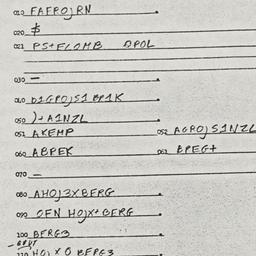 010 FAFPOJRN
020 $
021 PS+FLOMB DPOL
030 —
040 D1GPOJS1 BP1K
050 )+A1NZL
051 AKEMP 052 AGPOJS1NZL
060 ABPEK 061 BPEG+
070 —
080 AHOJ3XBERG
090 OFN HOJX+BERG
100 BFRG3
110 HOJ X O BFPG3